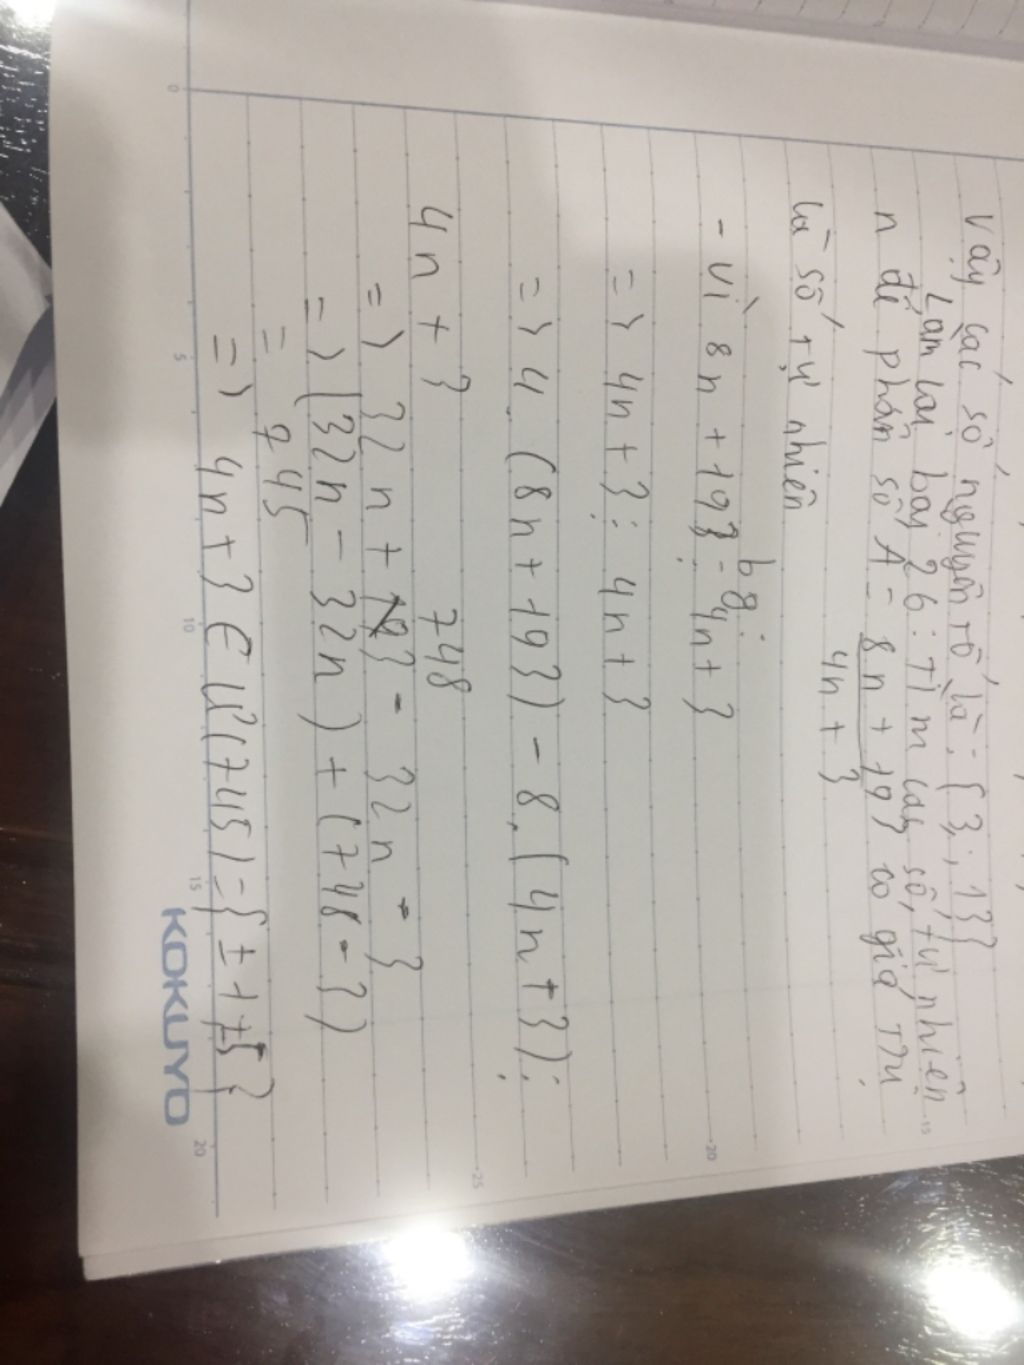 Vậy các số nguyên tố là: {3; 13}
Làm lại bài 26: Tìm các số tự nhiên
n để phân số A = 8n + 193 có giá trị
4n + 3
là số tự nhiên
bg:
- Vì 8n + 193 ⋮ 4n + 3
=> 4n + 3 ⋮ 4n + 3
=> 4. (8n + 193) - 8. (4n + 3) ⋮
4n + 3
748
=> 32n + 193 - 32n - 3
=> (32n - 32n) + (748 - 3)
= 745
=> 4n + 3 ∈ Ư(745) = {± 1 75}
KOKUYO
0
5
10
15
20
15
20
25